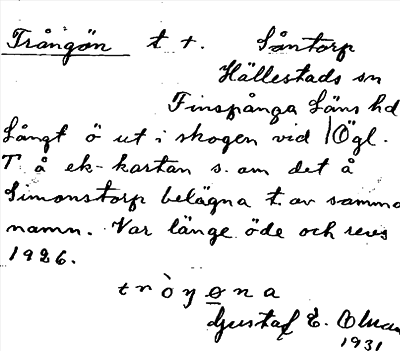 Trångön t +. Såntorp
Hällestads sn
Finspånga Läns hd
Långt ö ut i skogen vid Ögl.
T å ek-kartan s. om det å
Simonstorp belägna t. av samma
namn. Var länge öde och revs
1926.
tròŋona
Gustaf E.
1931